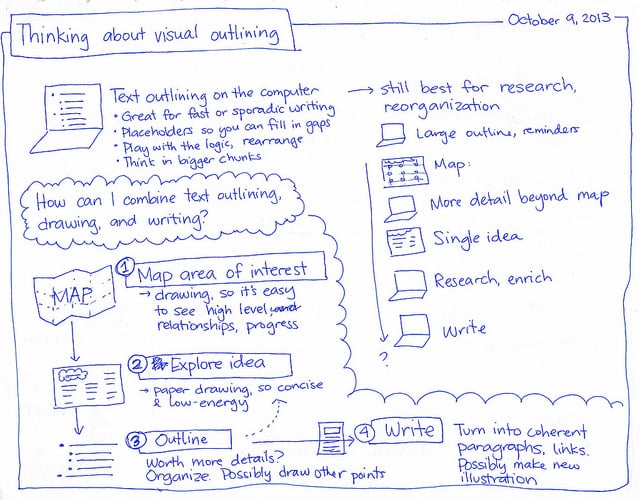 Thinking about visual outlining
October 9, 2013
Text outlining on the computer
• Great for fast or sporadic writing
• Placeholders so you can fill in gaps
• Play with the logic, rearrange
• Think in bigger chunks
→ still best for research,
reorganization
Large outline, reminders
Map:
More detail beyond map
Single idea
Research, enrich
Write
?
How can I combine text outlining,
drawing, and writing?
MAP
① Map area of interest
→ drawing, so it's easy
to see high level
relationships, progress
② Explore idea
→ paper drawing, so concise
& low-energy
③ Outline
Worth more details?
Organize. Possibly draw other points
④ Write
Turn into coherent
paragraphs, links.
Possibly make new
illustration